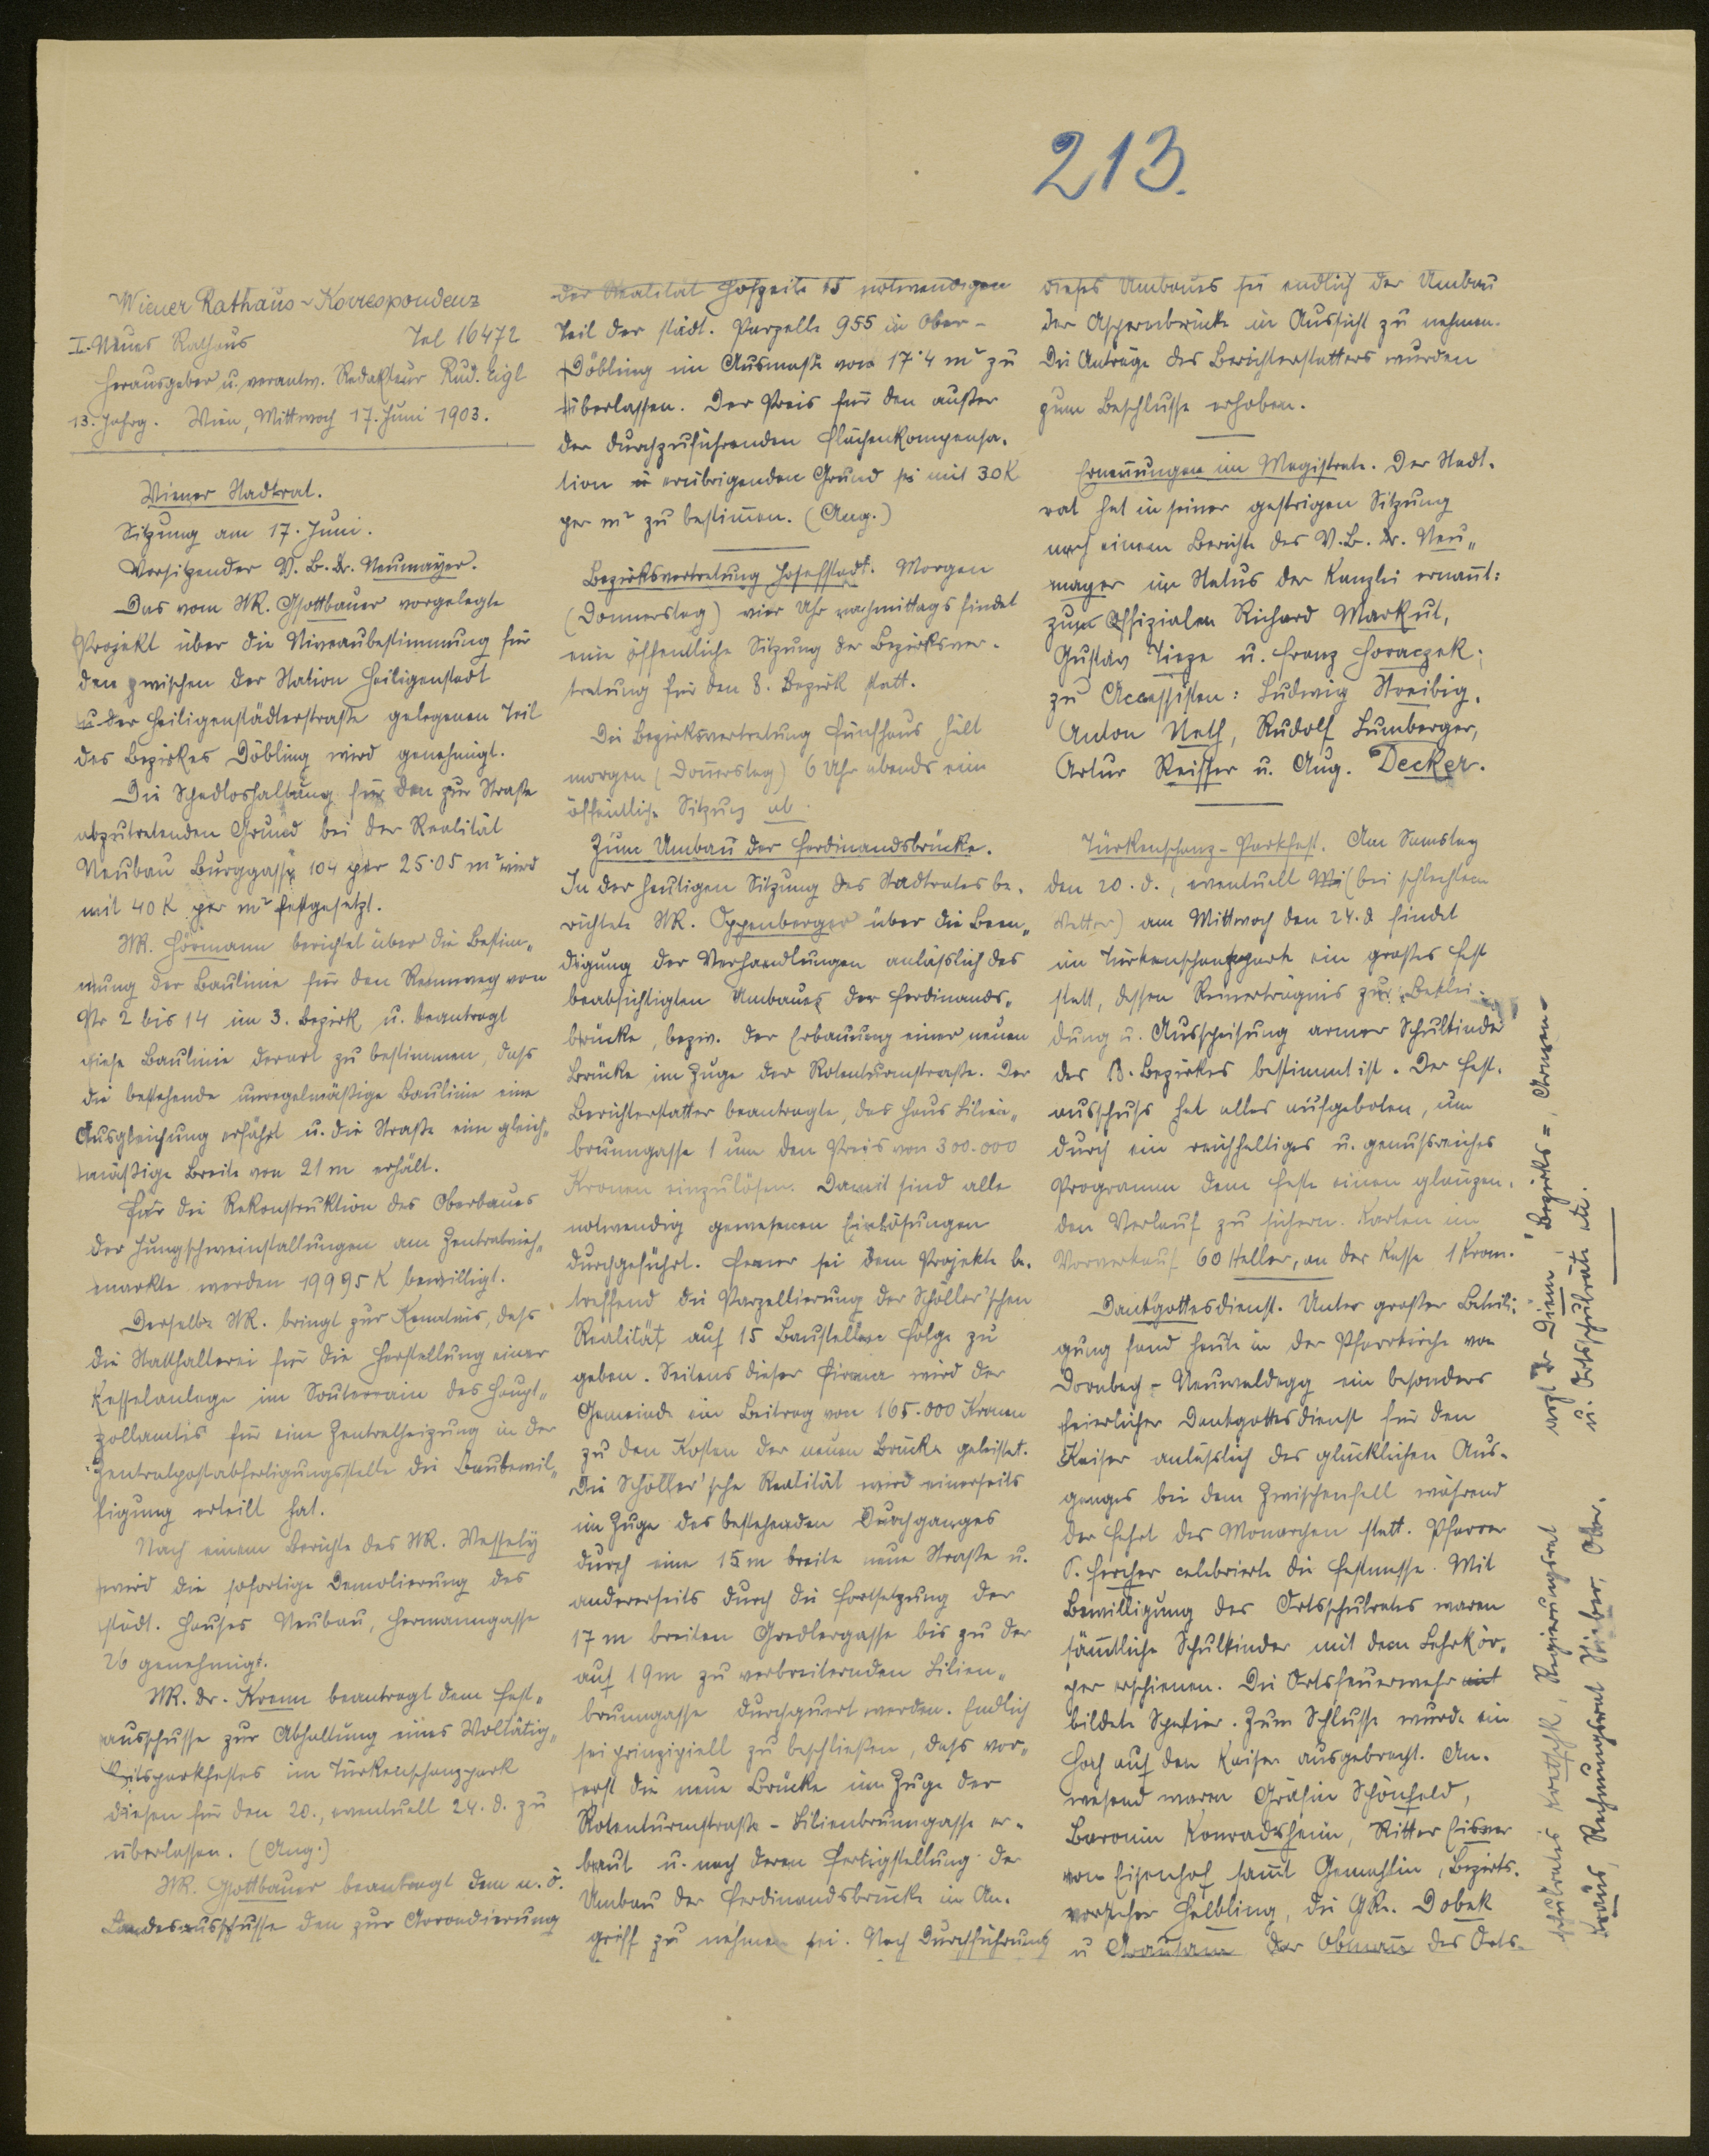 213.
Wiener Rathaus-Korrespondenz
I. Neues Rathaus Tel 16472
Herausgeber u. verantw. Redakteur Rud. Eigl
13. Jahrg. Wien, Mittwoch 17. Juni 1903.
Wiener Stadtrat.
Sitzung am 17. Juni.
Vorsitzender V. B. Dr. Neumayer.
Das vom StR. Gsottbauer vorgelegte
Projekt über die Niveaubestimmung für
den zwischen der Station Heiligenstadt
u. der Heiligenstädterstraße gelegenen Teil
des Bezirkes Döbling wird genehmigt.
Die Schadloshaltung für den zur Straße
abzutretenden Grund bei der Realität
Neubau Burggasse 104 per 25·05 m² wird
mit 40 K per m² festgesetzt.
StR. Hörmann berichtet über die Bestim-
mung der Baulinie für den Rennweg von
Nr 2 bis 14 im 3. Bezirk u. beantragt
diese Baulinie derart zu bestimmen, daß
die bestehende unregelmäßige Baulinie eine
Ausgleichung erfährt u. die Straße eine gleich-
mäßige Breite von 21 m erhält.
Für die Rekonstruktion des Oberbaues
der Jungschweinstallungen am Zentralvieh-
markte werden 19995 K bewilligt.
Derselbe StR. bringt zur Kenntnis, daß
die Statthalterei für die Herstellung einer
Kesselanlage im Souterrain des Haupt-
zollamtes für eine Zentralheizung in der
Zentralpostabfertigungsstelle die Baubewil-
ligung erteilt hat.
Nach einem Berichte des StR. Wessely
wird die sofortige Demolierung des
städt. Hauses Neubau, Hermanngasse
26 genehmigt.
StR. Dr. Krenn beantragt dem Fest-
ausschusse zur Abhaltung eines Woltätig-
keitsparkfestes im Türkenschanzpark
diesen für den 20., eventuell 24. d. zu
überlassen. (Ang.)
StR. Gsottbauer beantragt dem n. ö.
Landesausschusse den zur Arrondierung
der Realität Hofzeile 15 notwendigen
Teil der städt. Parzelle 955 in Ober-
Döbling im Ausmaße von 17·4 m² zu
überlassen. Der Preis für den außer
der durchzuführenden Flächenkompensa-
tion erübrigenden Grund sei mit 30 K
per m² zu bestimmen. (Ang.)
Bezirksvertretung Josefstadt. Morgen
(Donnerstag) vier Uhr nachmittags findet
eine öffentliche Sitzung der Bezirksver-
tretung für den 8. Bezirk statt.
Die Bezirksvertretung Fünfhaus hält
morgen (Donnerstag) 6 Uhr abends eine
öffentliche Sitzung ab.
Zum Umbau der Ferdinandsbrücke.
In der heutigen Sitzung des Stadtrates be-
richtete StR. Oppenberger über die Been-
digung der Verhandlungen anläßlich des
beabsichtigten Umbaues der Ferdinands-
brücke, bezw. der Erbauung einer neuen
Brücke im Zuge der Rotenturmstraße. Der
Berichterstatter beantragte, das Haus Lilien-
brunngasse 1 um den Preis von 300.000
Kronen einzulösen. Damit sind alle
notwendig gewesenen Einlösungen
durchgeführt. Ferner sei dem Projekte be-
treffend die Parzellierung der Schöller'schen
Realität auf 15 Baustellen Folge zu
geben. Seitens dieser Firma wird der
Gemeinde ein Beitrag von 165.000 Kronen
zu den Kosten der neuen Brücke geleistet.
Die Schöller'sche Realität wird einerseits
im Zuge des bestehenden Durchganges
durch eine 15 m breite neue Straße u.
andererseits durch die Fortsetzung der
17 m breiten Gredlergasse bis zu der
auf 19 m zu verbreiternden Lilien-
brunngasse durchquert werden. Endlich
sei prinzipiell zu beschließen, daß vor-
erst die neue Brücke im Zuge der
Rotenturmstraße - Lilienbrunngasse er-
baut u. nach deren Fertigstellung der
Umbau der Ferdinandsbrücke in An-
griff zu nehmen sei. Nach Durchführung
dieses Umbaues sei endlich der Umbau
der Aspernbrücke in Aussicht zu nehmen.
Die Anträge des Berichterstatters wurden
zum Beschlusse erhoben.
Ernennungen im Magistrate. Der Stadt-
rat hat in seiner gestrigen Sitzung
nach einem Berichte des V. B. Dr. Neu-
mayer im Status der Kanzlei ernannt:
zum Offizialen Richard Markut,
Gustav Tieze u. Franz Horaczek;
zu Accessisten: Ludwig Streibig,
Anton Neth, Rudolf Lumberger,
Artur Reisser u. Aug. Decker.
Türkenschanz-Parkfest. Am Samstag
den 20. d., eventuell (bei schlechtem
Wetter) am Mittwoch den 24. d findet
im Türkenschanzpark ein großes Fest
statt, dessen Reinerträgnis zur Beklei-
dung u. Ausspeisung armer Schulkinder
des 18. Bezirkes bestimmt ist. Der Fest-
ausschuß hat alles aufgeboten, um
durch ein reichhaltiges u. genußreiches
Programm dem Feste einen glänzen-
den Verlauf zu sichern. Karten im
Vorverkauf 60 Heller, an der Kasse 1 Kron.
Dankgottesdienst. Unter großer Beteili-
gung fand heute in der Pfarrkirche von
Dornbach-Neuwaldegg ein besonders
feierlicher Dankgottesdienst für den
Kaiser anläßlich des glücklichen Aus-
ganges bei dem Zwischenfall während
der Fahrt des Monarchen statt. Pfarrer
P. Fercher celebrierte die Festmesse. Mit
Bewilligung des Ortsschulrates waren
sämtliche Schulkinder mit dem Lehrkör-
per erschienen. Die Ortsfeuerwehr
bildete Spalier. Zum Schlusse wurde ein
Hoch auf den Kaiser ausgebracht. An-
wesend waren Gräfin Schönfeld,
Baronin Konradsheim, Ritter Eisner
von Eisenhof samt Gemahlin, Bezirks-
vorsteher Helbling, die GRe. Dobek
u der Obmann des Orts-
schulrates Kratschk, Regierungsrat
Kraus, Rechnungsrat Ober-
arzt Dr Diem, Bezirks=, Armen-
u. Ortsschulräte etc.